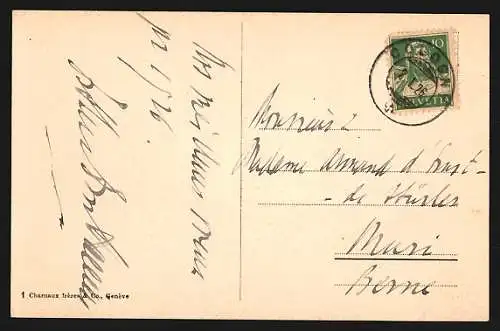 Nos meilleurs vœux
pr 1926
10
HELVETIA
Monsieur &
Madame Armand d'Ernst-
de Stürler
Muri
Berne
1 Charnaux frères & Co., Genève